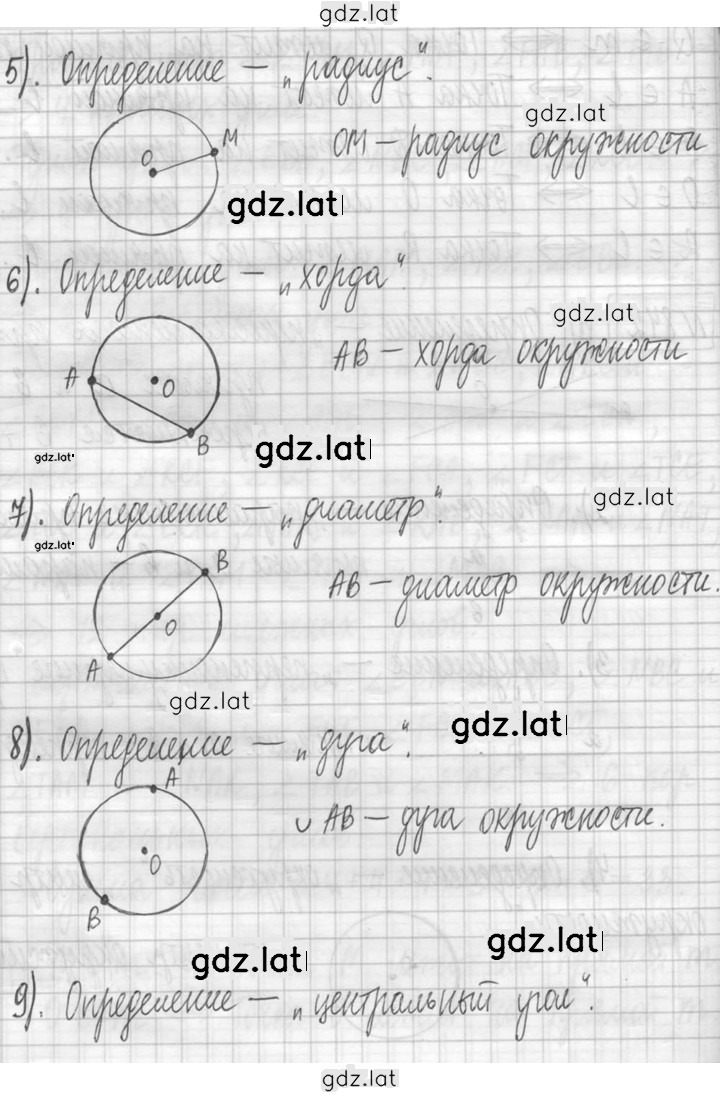 gdz.lat
5). Определение – „радиус“.
gdz.lat
O M
OM – радиус окружности
gdz.lat
6). Определение – „хорда“.
gdz.lat
AB – хорда окружности
A O B
gdz.lat
gdz.lat
7). Определение – „диаметр“.
gdz.lat
gdz.lat
B O A
AB – диаметр окружности.
gdz.lat
gdz.lat
8). Определение – „дуга“.
A O B
∪ AB – дуга окружности.
gdz.lat
gdz.lat
9). Определение – „центральный угол“.
gdz.lat